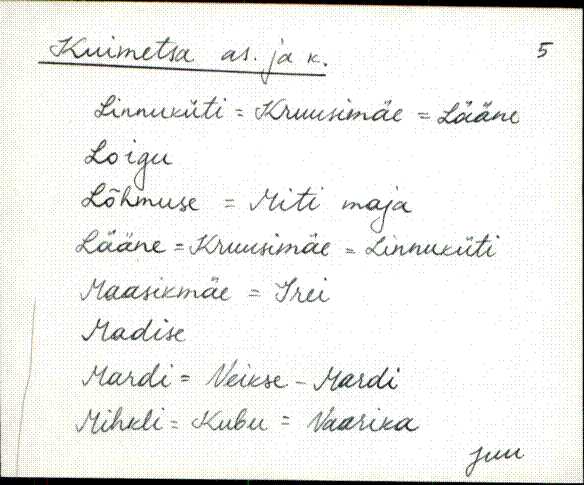 Kuimetsa as. ja k. 5
Linnuküti = Kruusimäe = Lääne
Loigu
Lõhmuse = Miti maja
Lääne = Kruusimäe = Linnuküti
Maasikmäe = Irei
Madise
Mardi = Veikse-Mardi
Mihkli = Kubu = Vaarika
juu